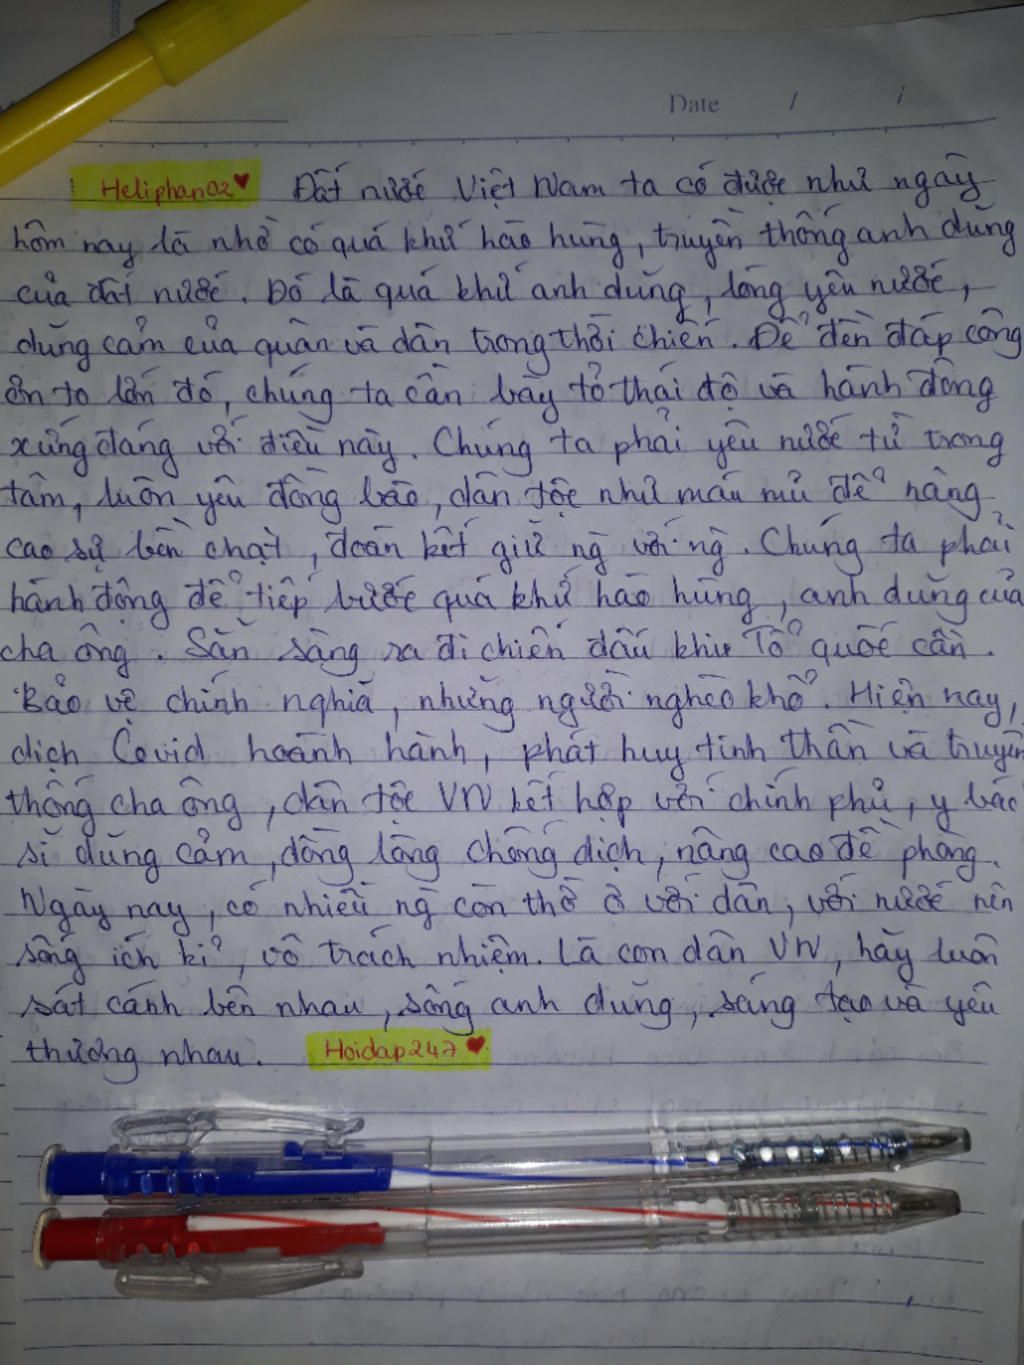 Date / /
Heliphan02♥ Đất nước Việt Nam ta có được như ngày
hôm nay là nhờ có quá khứ hào hùng, truyền thống anh dũng
của đất nước. Đó là quá khứ anh dũng, lòng yêu nước,
dũng cảm của quân và dân trong thời chiến. Để đền đáp công
ơn to lớn đó, chúng ta cần bày tỏ thái độ và hành động
xứng đáng với điều này. Chúng ta phải yêu nước từ trong
tâm, luôn yêu đồng bào, dân tộc như máu mủ để nâng
cao sự bền chặt, đoàn kết giữ ng với ng. Chúng ta phải
hành động để tiếp bước quá khứ hào hùng, anh dũng của
cha ông. Sẵn sàng ra đi chiến đấu khi Tổ quốc cần.
Bảo vệ chính nghĩa, những người nghèo khổ. Hiện nay,
dịch Covid hoành hành, phát huy tinh thần và truyền
thống cha ông, dân tộc VN kết hợp với chính phủ, y bác
sĩ dũng cảm, đồng lòng chống dịch, nâng cao đề phòng.
Ngày nay, có nhiều ng còn thờ ơ với dân, với nước nên
sống ích kỉ, vô trách nhiệm. Là con dân VN, hãy luôn
sát cánh bên nhau, sống anh dũng, sáng tạo và yêu
thương nhau. Hoidap247♥